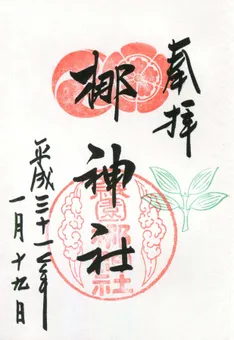 奉拝
梛神社
平成三十一年
一月十九日